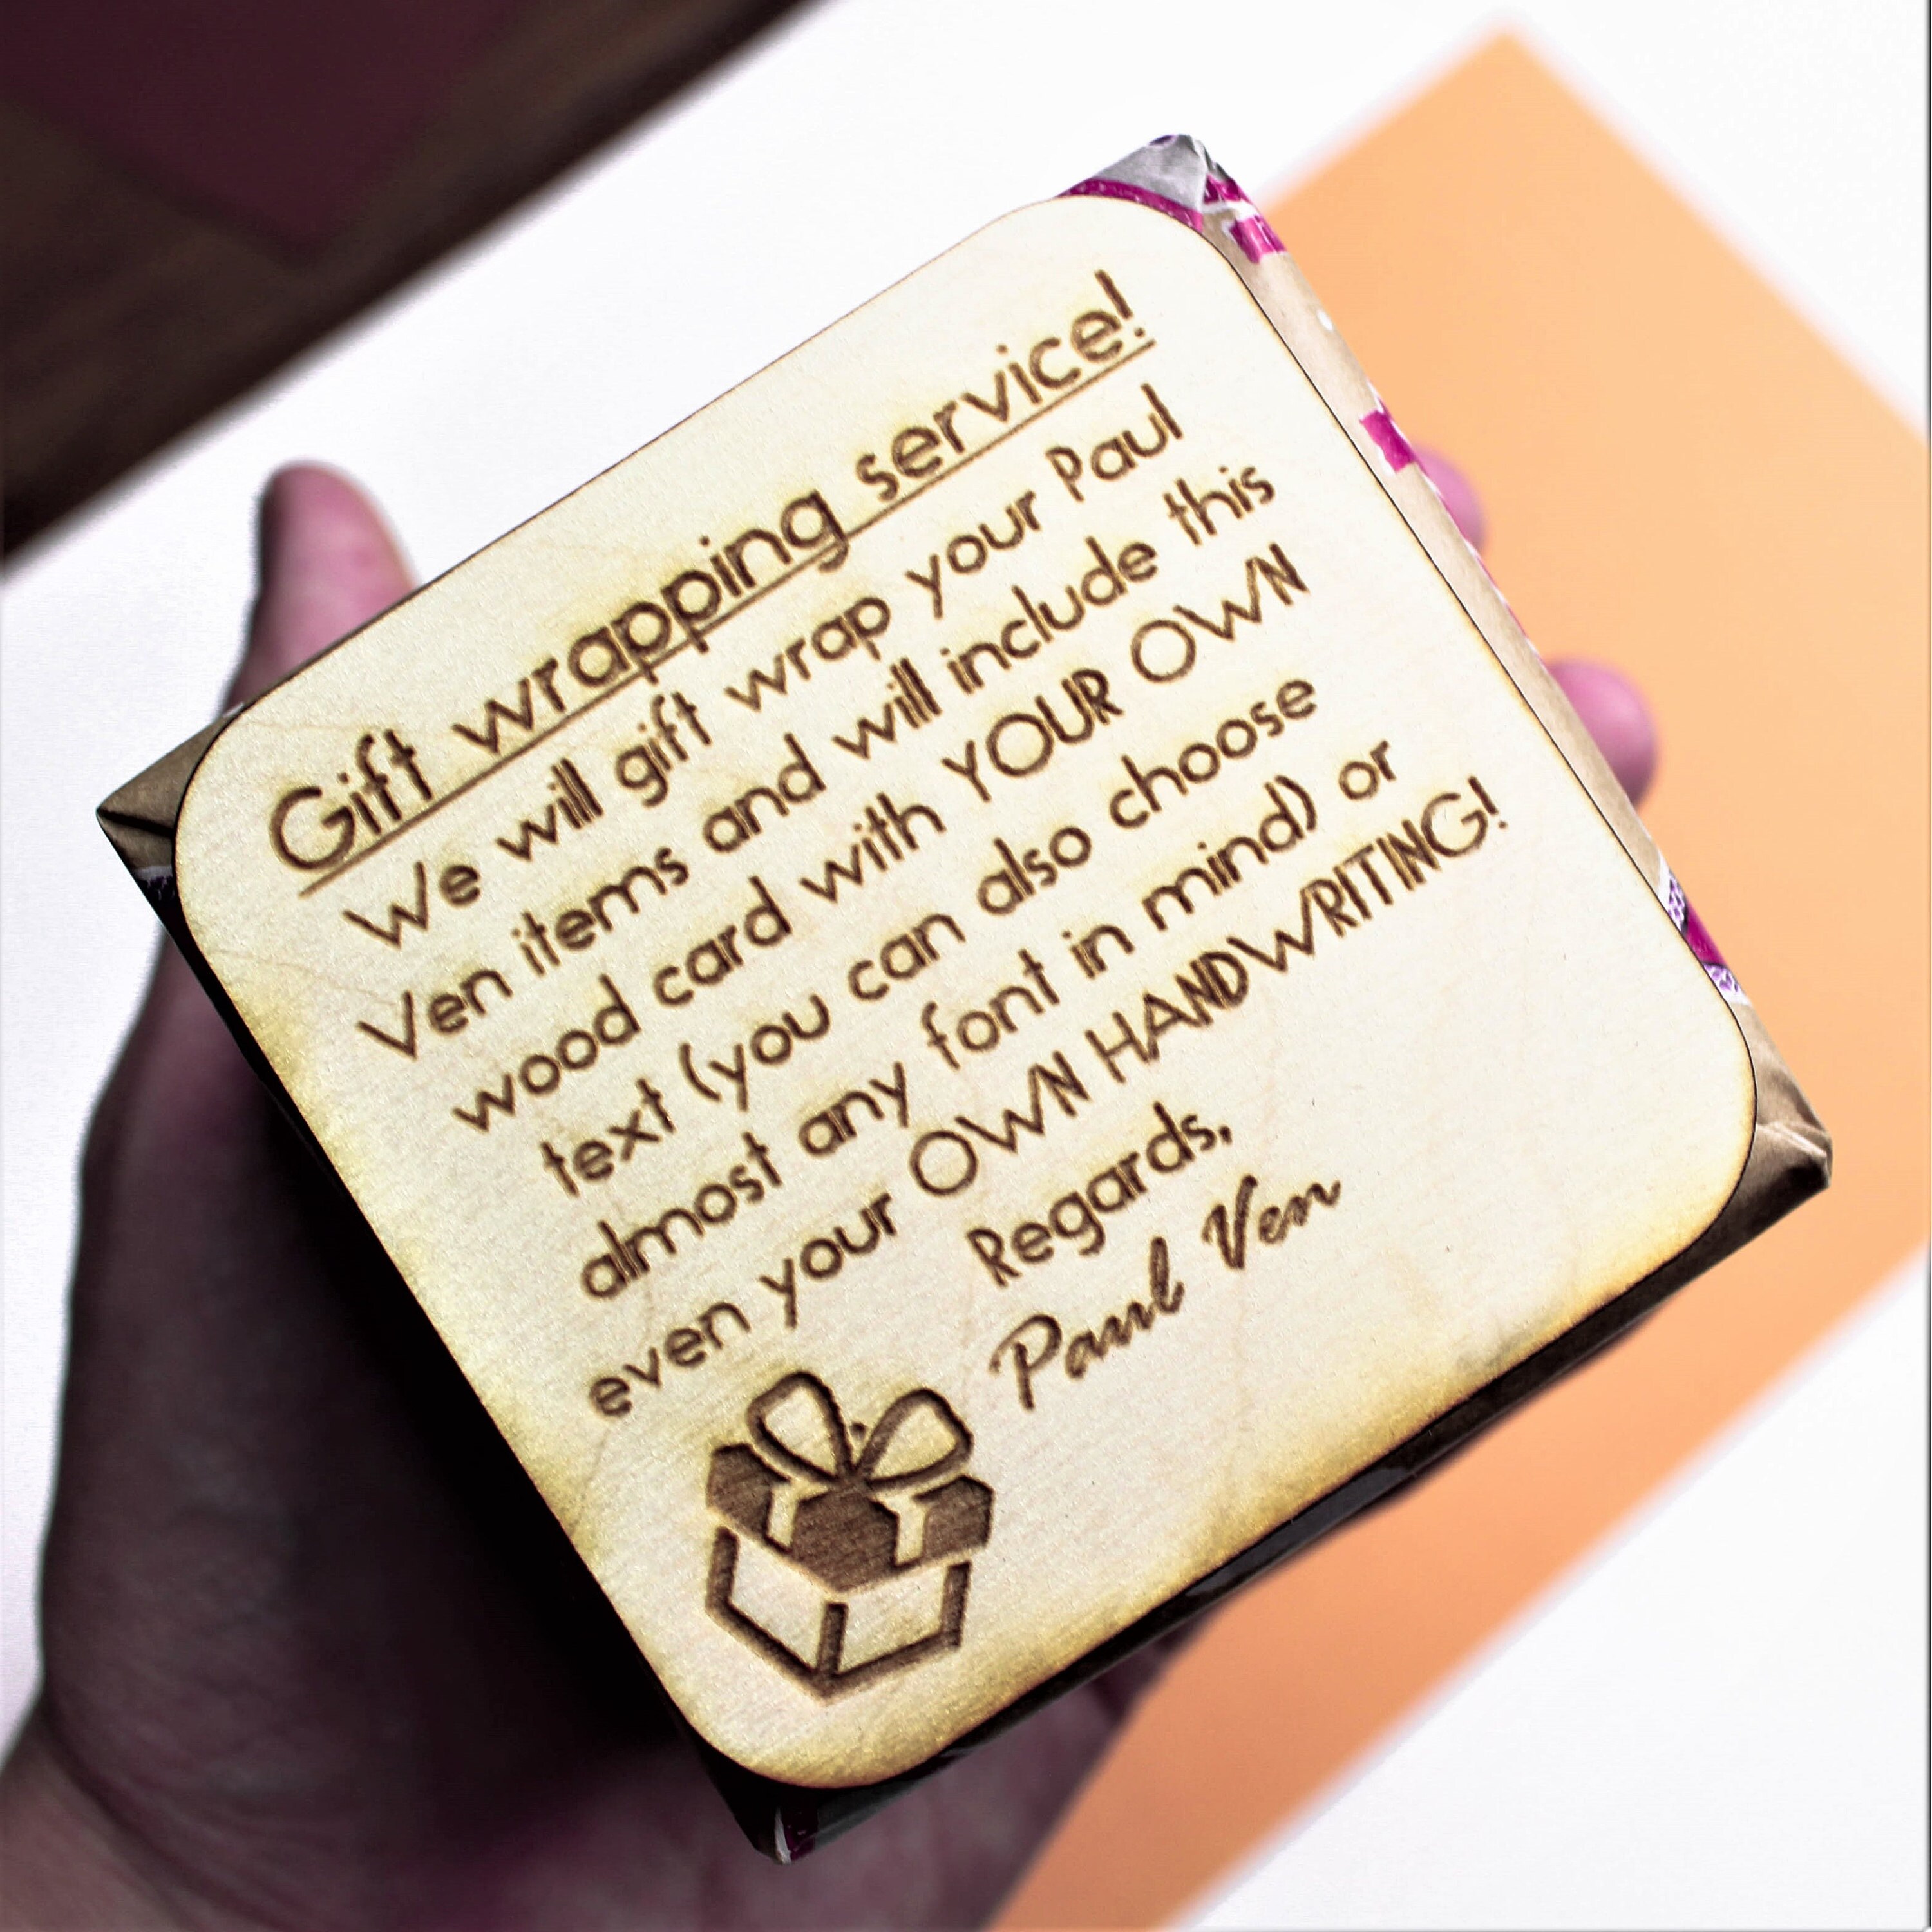 Gift wrapping service!
We will gift wrap your Paul
Ven items and will include this
wood card with YOUR OWN
text (you can also choose
almost any font in mind) or
even your OWN HANDWRITING!
Regards,
Paul Ven